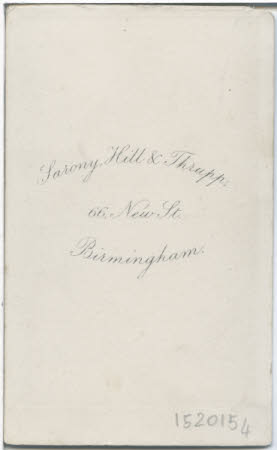 Sarony, Hill & Thrupp,
66, New St.
Birmingham.
1520154